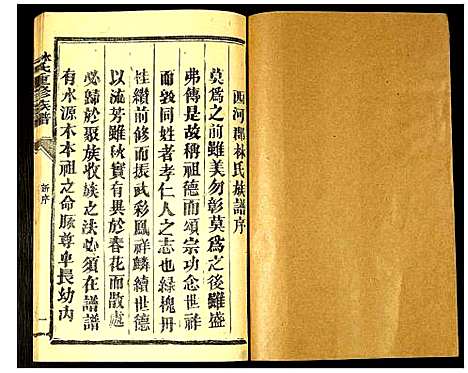 西河郡林氏族譜序
莫爲之前雖美勿彰莫爲之後雖盛
弗傳是故稱祖德而頌宗功念世祥
而敦同姓者孝仁人之志也綠槐丹
桂纘前修而振武彩鳳祥麟續世德
以流芳雖秋實有異於春花而散處
必歸於聚族收族之法必須在譜譜
有水源木本祖之命脈尊卑長幼內
林氏重修族譜
新序
一